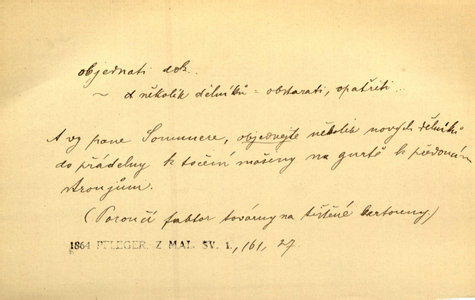 objednati dok.
~ d několik dělníků = obstarati, opatřiti.
A vy pane Sommere, objednejte několik nových dělníků
do přádelny k točení mašiny na gurtě k předoucím
strojům.
(Poroučí faktor továrny na tištěné kartouny)
1864 PFLEGER. Z MAL. SV. 1., 161, 27.